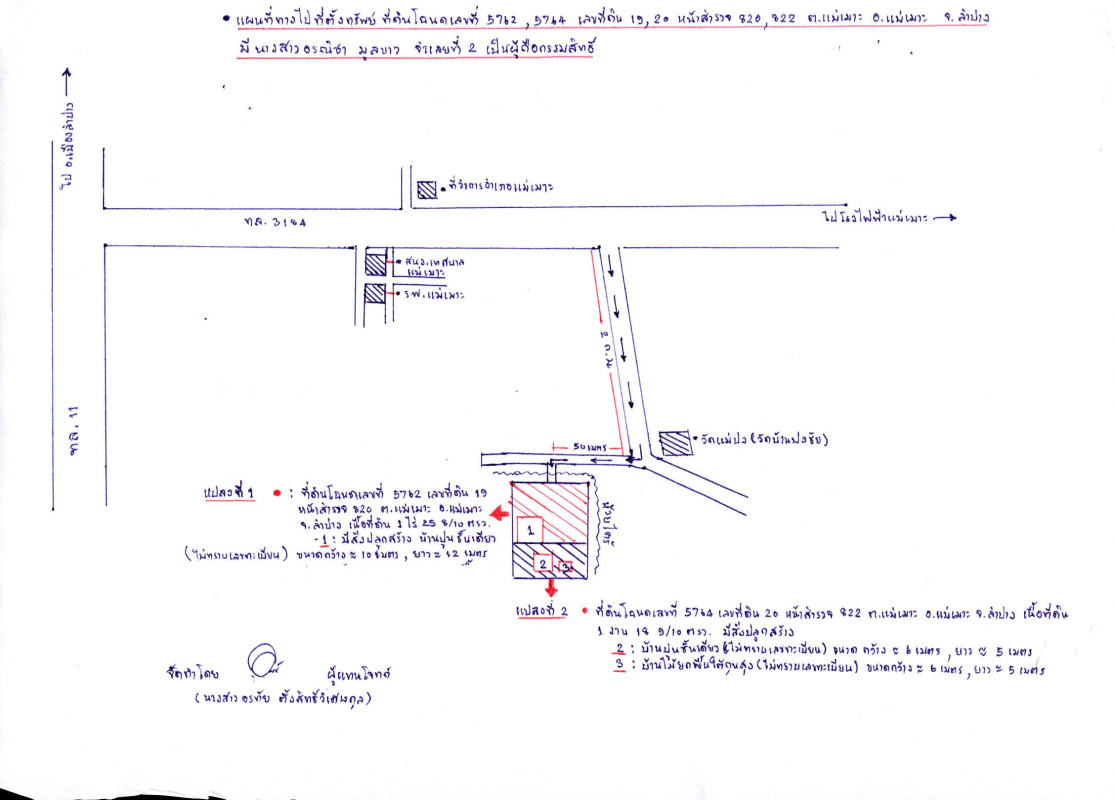 • แผนที่ทางไปที่ตั้งทรัพย์ ที่ดินโฉนดเลขที่ 5762 , 5764 เลขที่ดิน 19, 20 หน้าสำรวจ 820, 822 ต.แม่เมาะ อ.แม่เมาะ จ.ลำปาง
มี นางสาวอรณิชา มูลขาว จำเลยที่ 2 เป็นผู้ถือกรรมสิทธิ์
ไป อ.เมืองลำปาง
• ที่ว่าการอำเภอแม่เมาะ
ทล. 3184
ไปโรงไฟฟ้าแม่เมาะ
• สนง.เทศบาล
แม่เมาะ
• ร.พ.แม่เมาะ
2 ก.ม.
ทล. 11
50 เมตร
• วัดแม่ปง (วัดบ้านฟงชัย)
แปลงที่ 1 • : ที่ดินโฉนดเลขที่ 5762 เลขที่ดิน 19
หน้าสำรวจ 820 ต.แม่เมาะ อ.แม่เมาะ
จ.ลำปาง เนื้อที่ดิน 1 ไร่ 25 8/10 ตรว.
- 1 : มีสิ่งปลูกสร้าง บ้านปูนชั้นเดียว
(ไม่ทราบเลขทะเบียน) ขนาดกว้าง ≈ 10 เมตร , ยาว ≈ 12 เมตร
1
2
3
แปลงที่ 2 • ที่ดินโฉนดเลขที่ 5764 เลขที่ดิน 20 หน้าสำรวจ 822 ต.แม่เมาะ อ.แม่เมาะ จ.ลำปาง เนื้อที่ดิน
1 งาน 18 9/10 ตรว. มีสิ่งปลูกสร้าง
2 : บ้านปูนชั้นเดียว (ไม่ทราบเลขทะเบียน) ขนาด กว้าง ≈ 6 เมตร , ยาว ≈ 5 เมตร
3 : บ้านไม้ยกพื้นใต้ถุนสูง (ไม่ทราบเลขทะเบียน) ขนาดกว้าง ≈ 6 เมตร , ยาว ≈ 5 เมตร
จัดทำโดย ผู้แทนโจทก์
(นางสาวอรทัย ตั้งสิทธิ์วิเศษกุล)